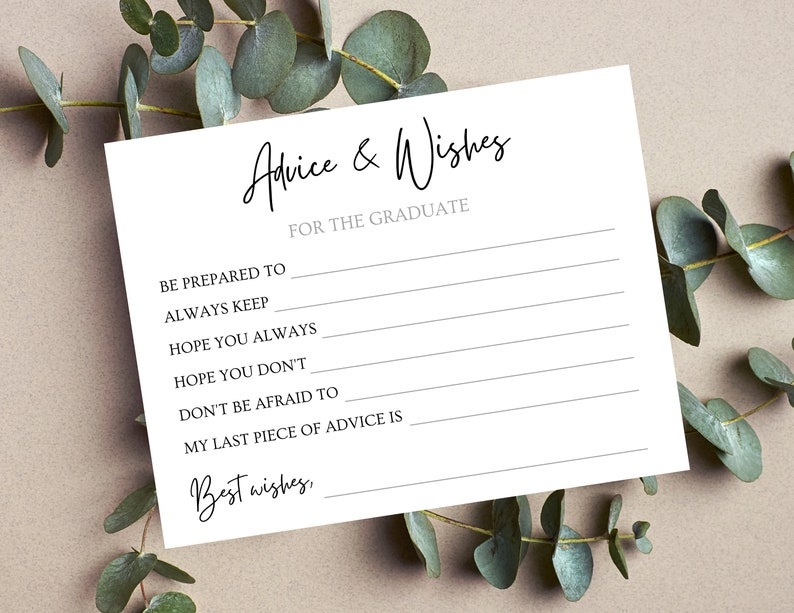 Advice & Wishes
FOR THE GRADUATE
BE PREPARED TO
ALWAYS KEEP
HOPE YOU ALWAYS
HOPE YOU DON'T
DON'T BE AFRAID TO
MY LAST PIECE OF ADVICE IS
Best wishes,